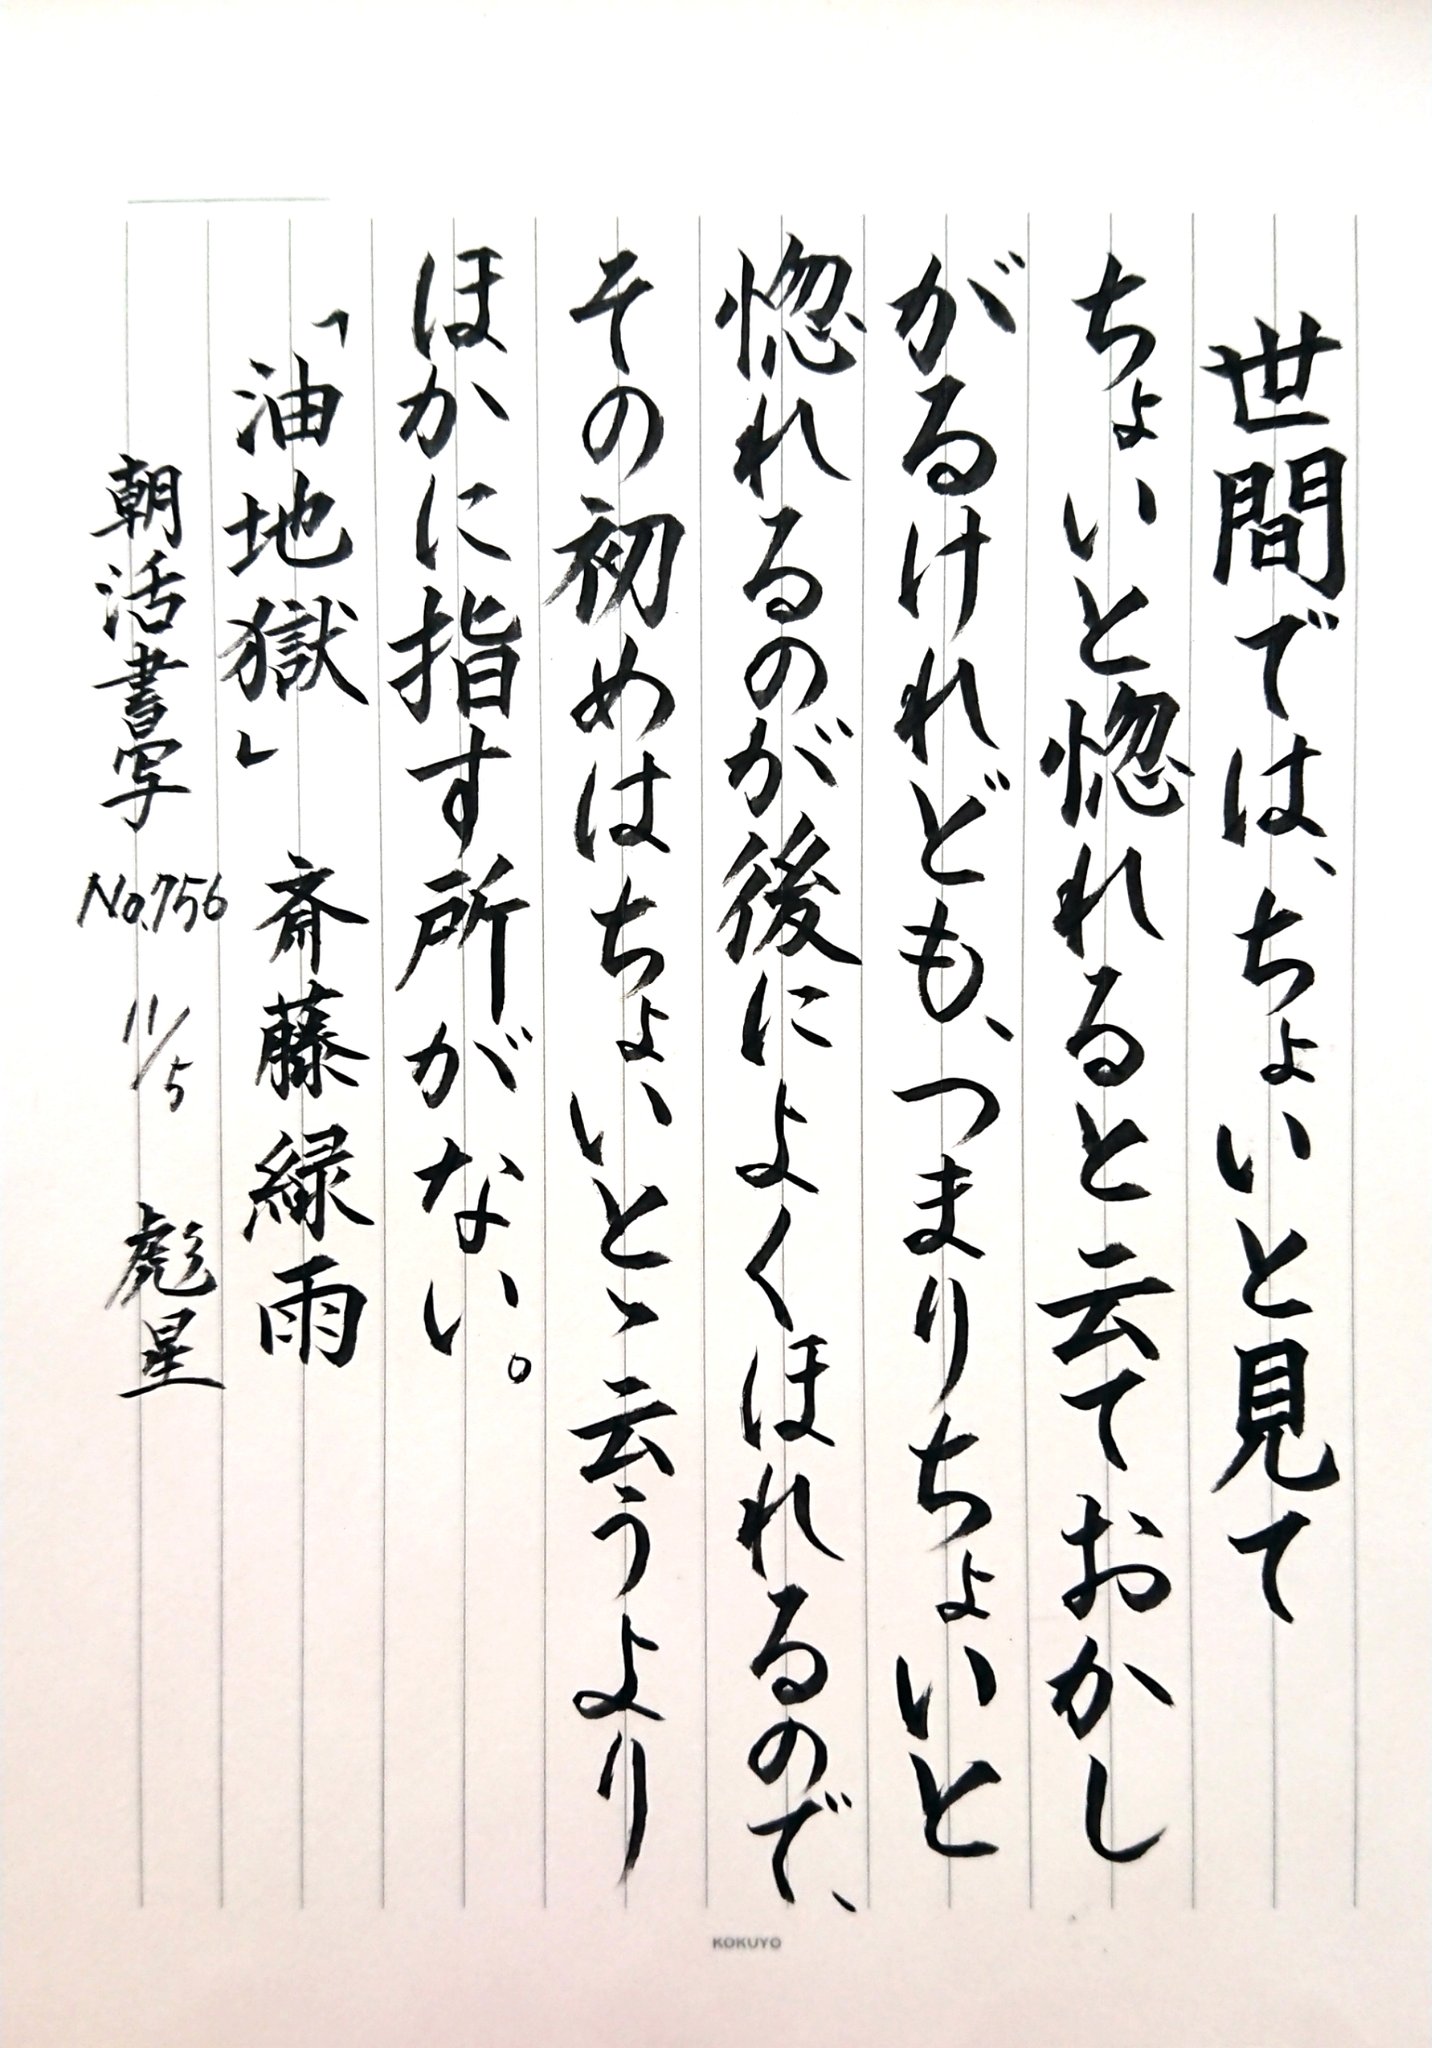 世間では、ちょいと見て
ちょいと惚れると云ておかし
がるけれども、つまりちょいと
惚れるのが後によくほれるので、
その初めはちょいとゝ云うより
ほかに指す所がない。
「油地獄」 斎藤緑雨
朝活書写 No.756 11/5 彪星
KOKUYO